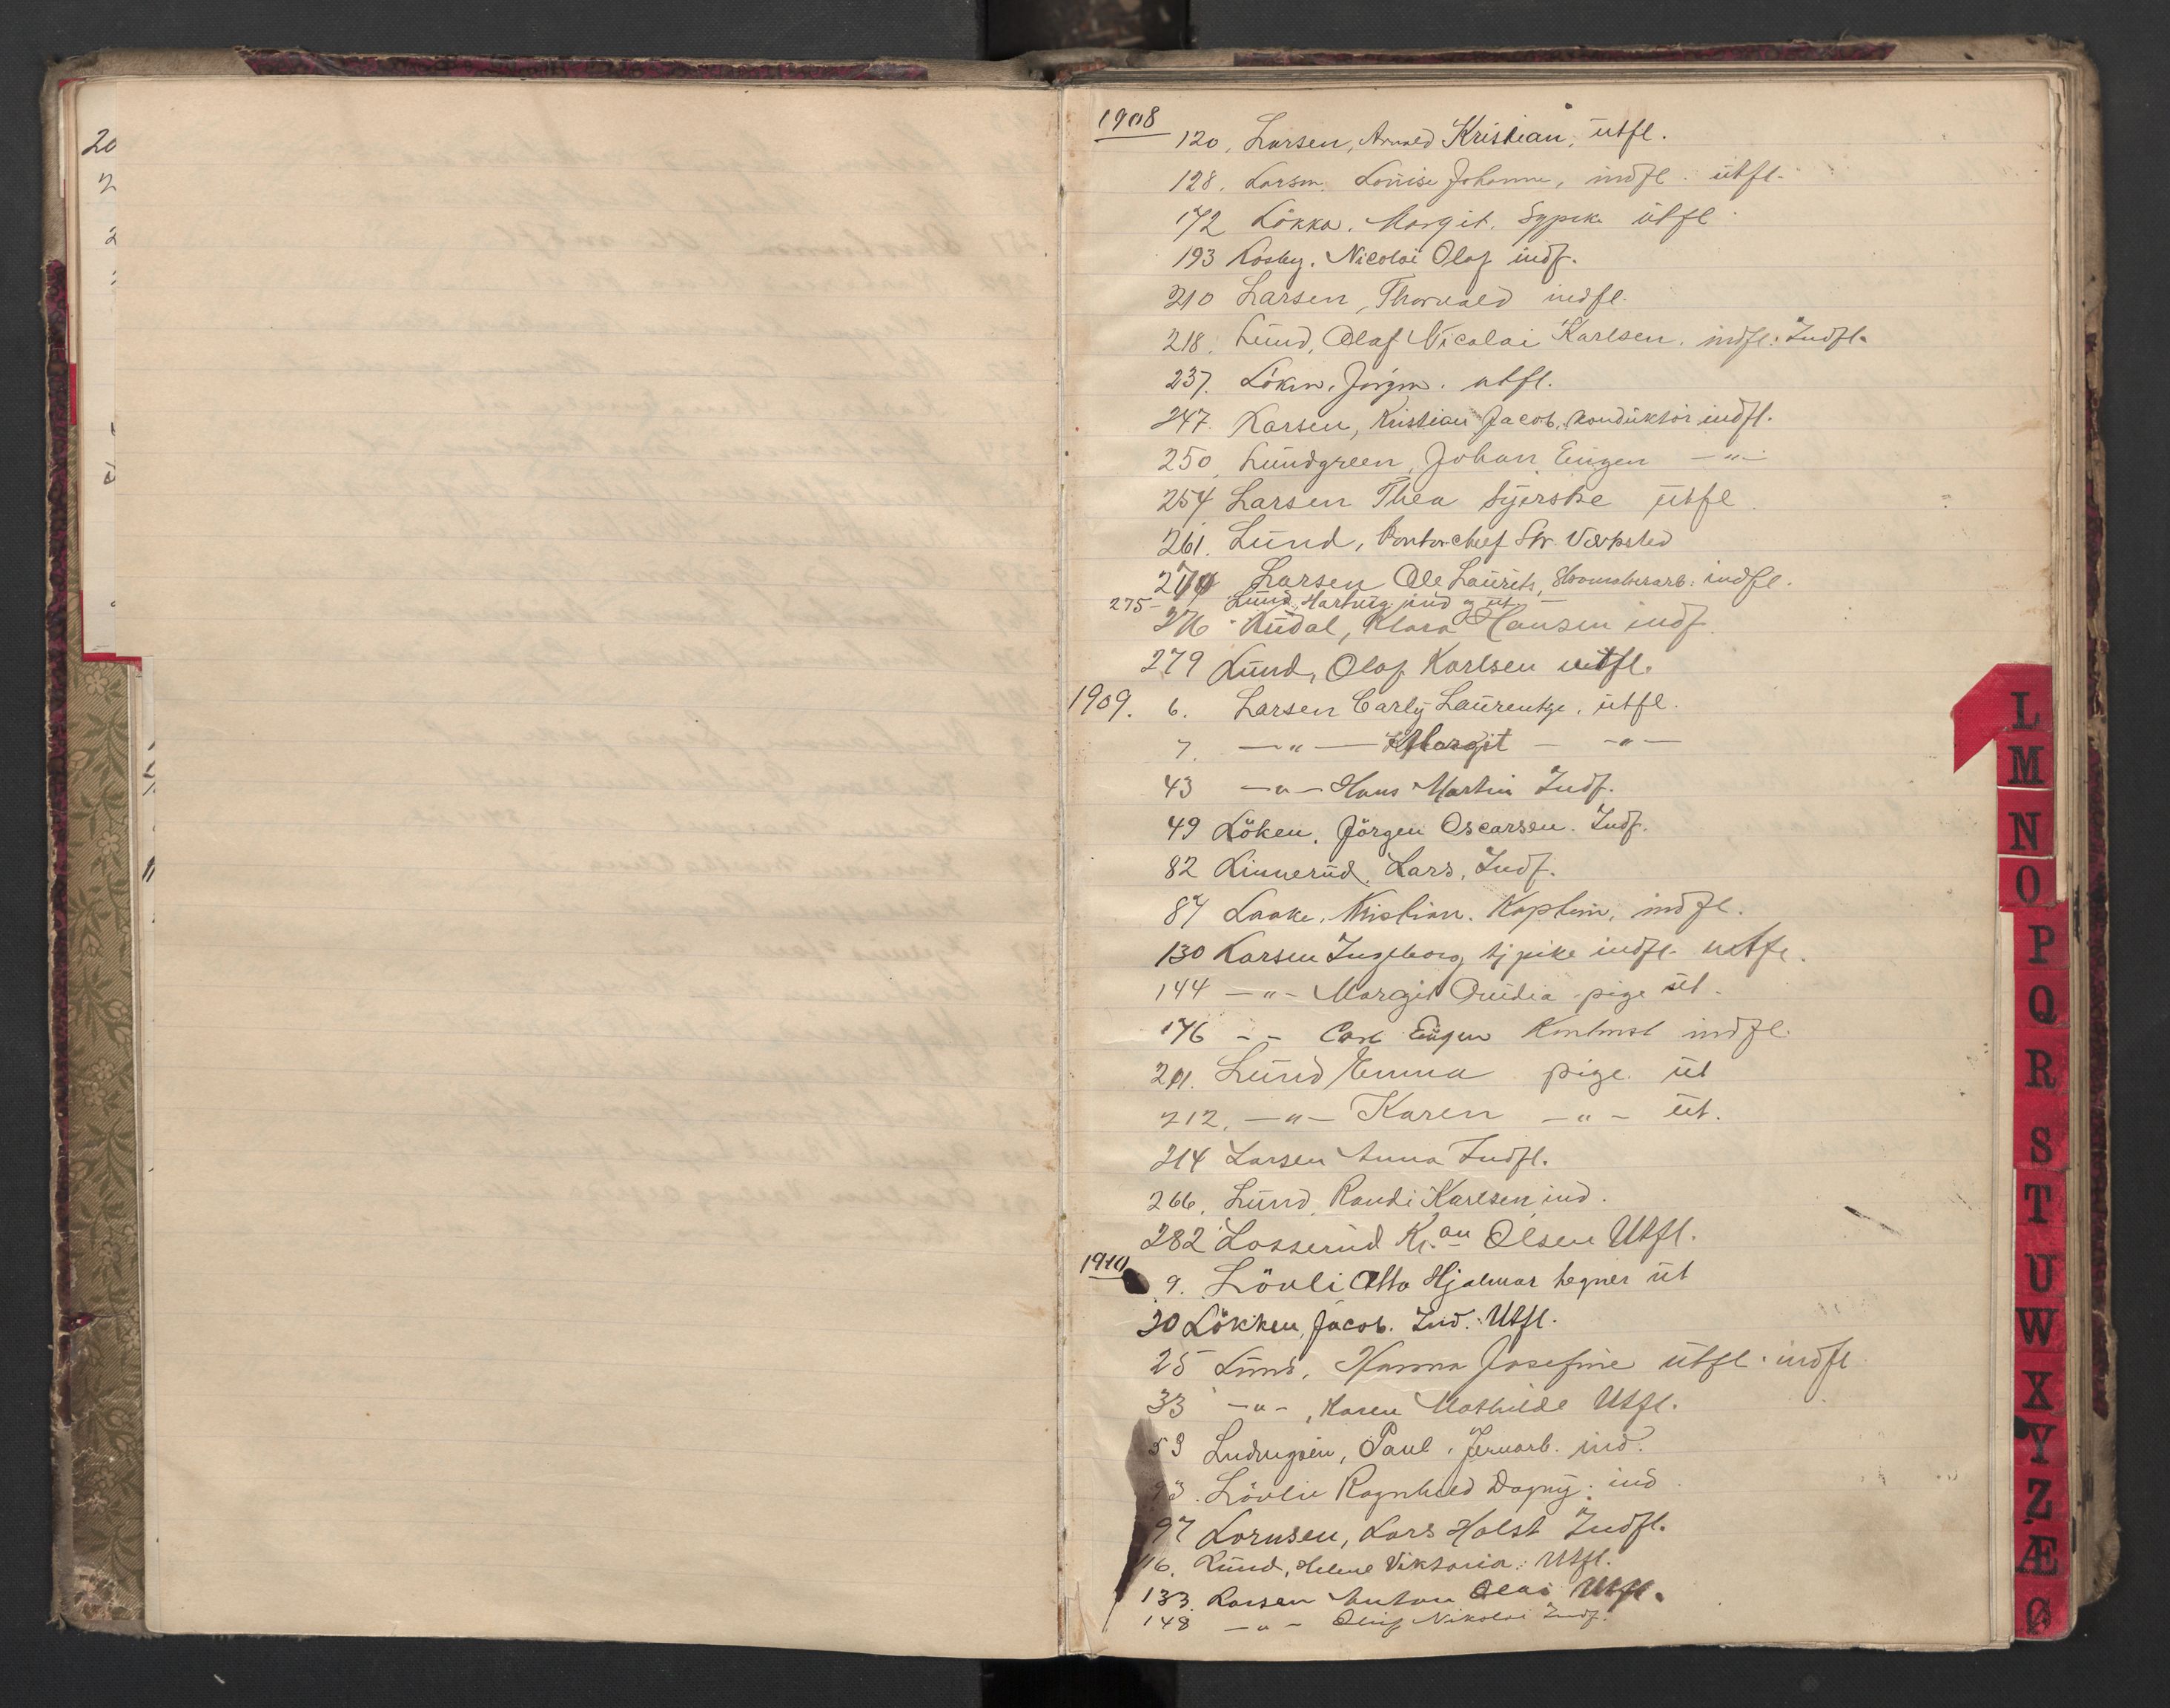 1908
120, Larsen, Arnold Kristian, utfl.
128. Larsen. Louise Johanne, indfl. utfl.
172 Lökka. Margit. Sypike utfl.
193 Losby. Nicolai Olaf indf.
210 Larsen, Thorvald indfl.
218. Lund, Olaf Nicolai Karlsen. indfl. Indfl.
237. Löken, Jörgen. utfl.
247. Larsen, Kristian Jacob, Konduktör indfl.
250, Lundgreen, Johan Eugen — " —
254 Larsen Thea Syerske utfl.
261. Lund, Kontorchef Str. Værksted
274 Larsen Ole Laurits, indfl.
275 — Lund, Hartvig ind og ut —
276 Lüdal, Klara Hansen indf.
279 Lund, Olaf Karlsen utfl.
1909. 6. Larsen Carly Laurentze, utfl.
7. — " — Margit — — " —
43 — " — Hans Martin Indf.
49 Löken, Jörgen Oscarsen. Indf.
82 Linnerud, Lars, Indf.
87 Laake, Kristian. Kaptein, indfl.
130 Larsen Ingeborg tjpike indfl. utfl.
144 — " — Margit Ovidia pige ut.
176 — " — Carl Eugen Kontorist indfl.
211. Lund Emma pige ut
212. — " — Karen — " — ut.
214 Larsen Anna Indfl.
266. Lund, Randi Karlsen, ind.
282 Losserud Kr.an Olsen Utfl.
1910
9. Lövli Otto Hjalmar tegner ut
20 Lökken, Jacob. Ind. Utfl.
25 Lund, Hanna Josefine utfl. indfl
33 — " — , Karen Mathilde Utfl.
53 Ludvigsen, Paul, Jernarb. ind.
93. Lövlie Ragnhild Dagny. ind
97 Lornsen, Lars Holst Indfl.
116. Lund, Helene Viktoria. Utfl.
133. Larsen Anton Olai Utfl.
148 — " — Oluf Nikolai Indf.
L
M
N
O
P
Q
R
S
T
U
W
X
Y
Z
Æ
Ø